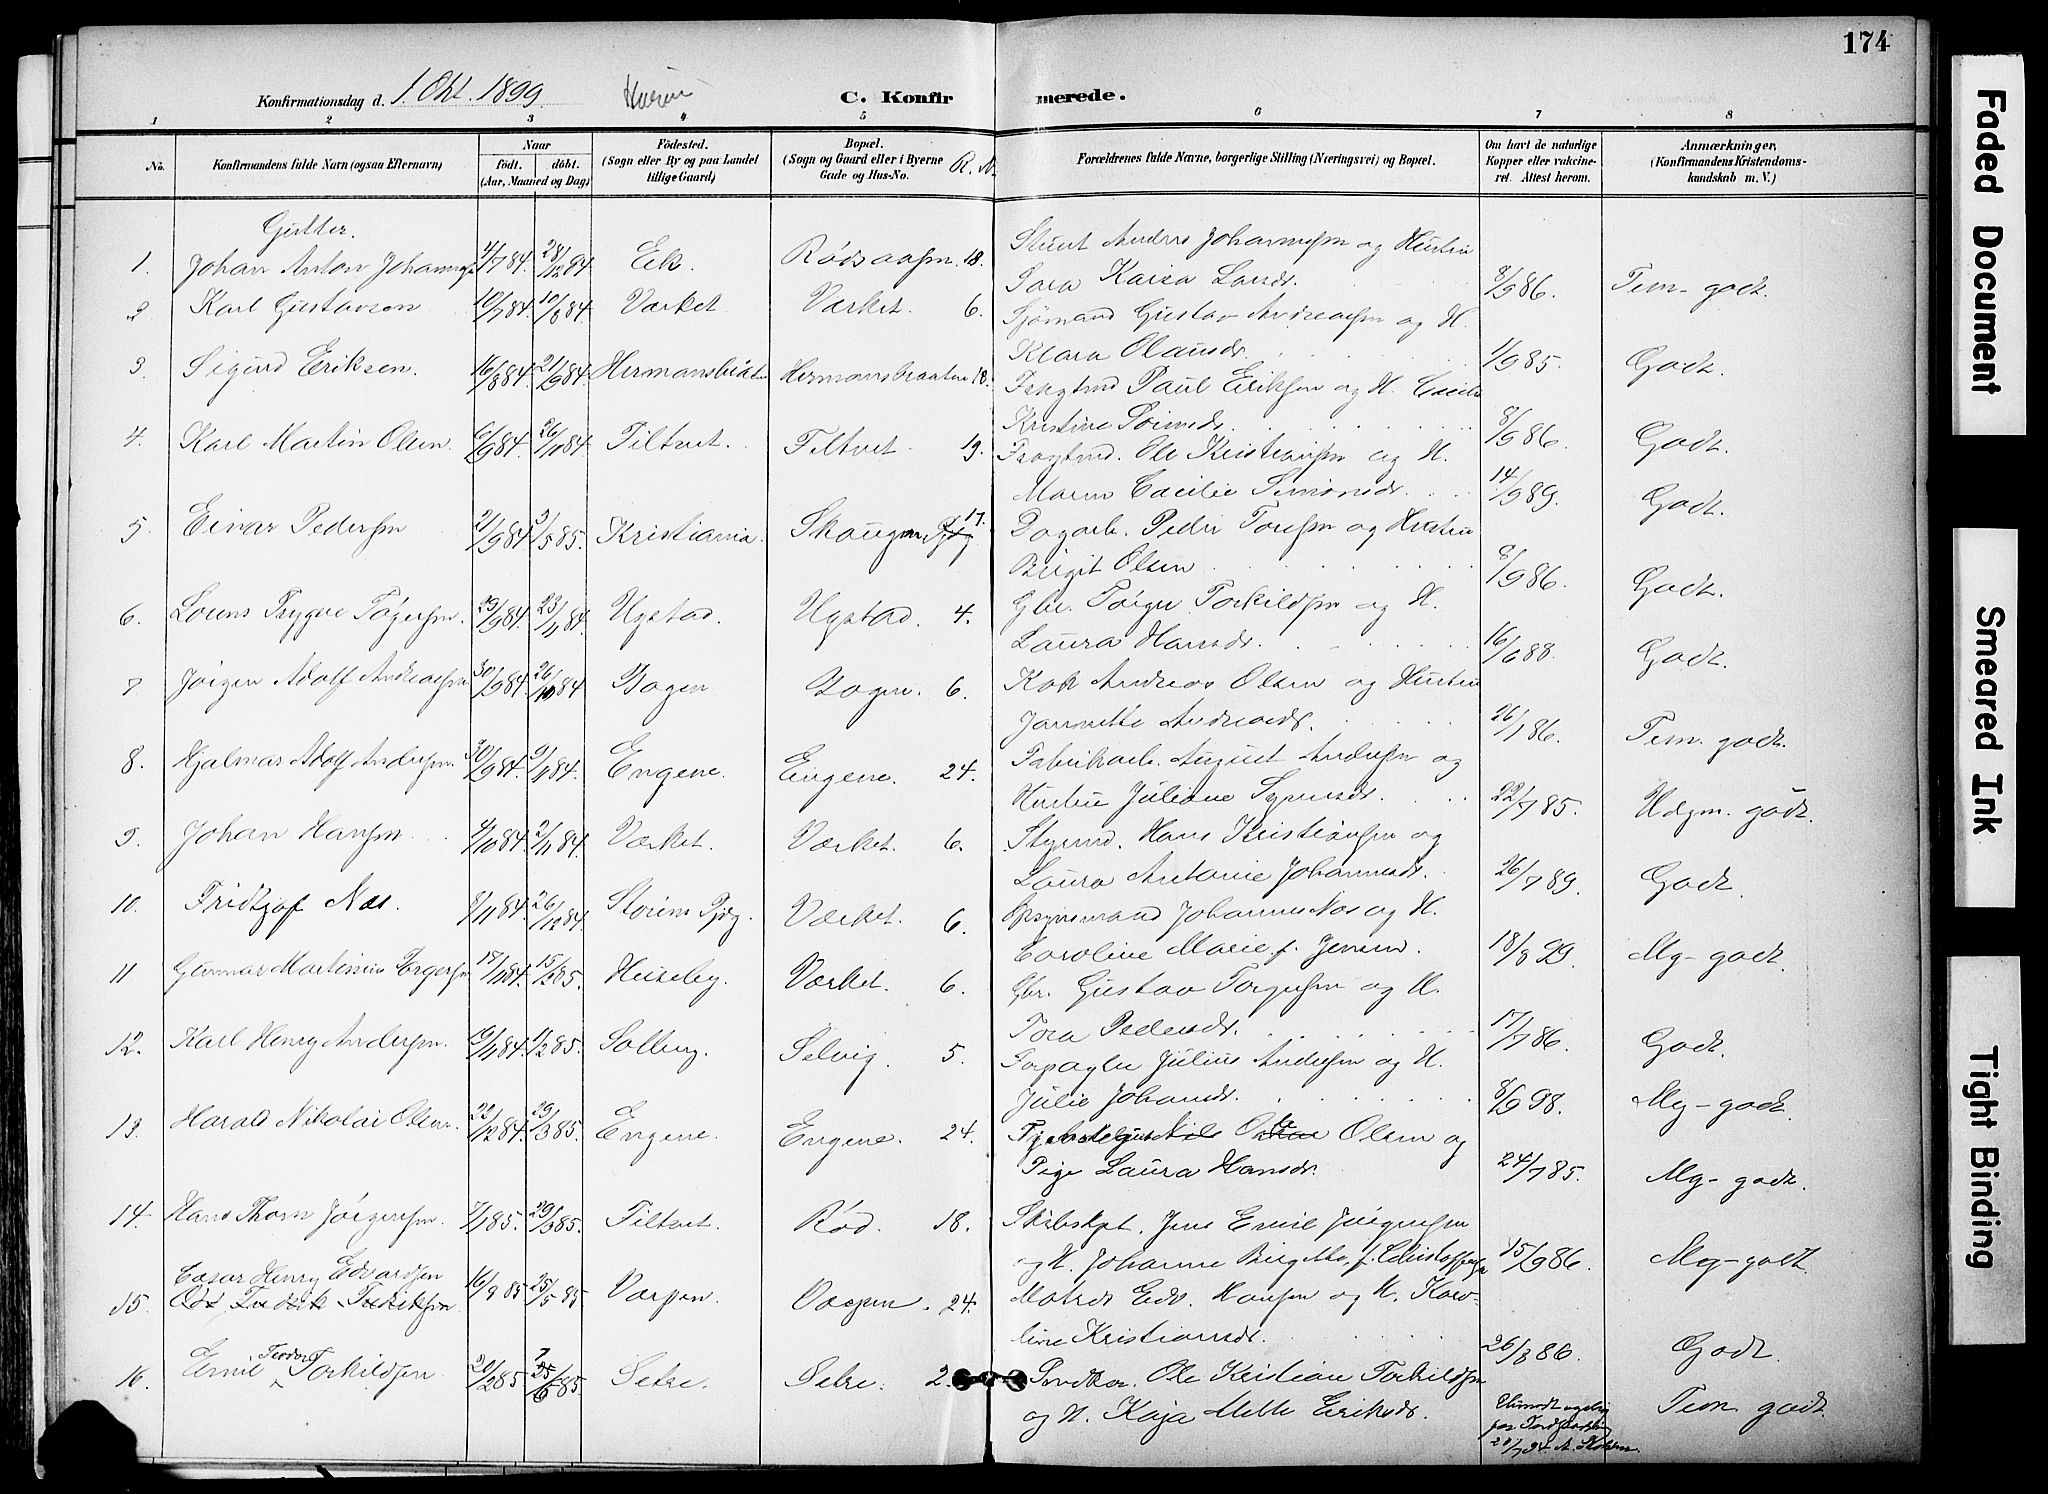 174
Konfirmationsdag d. 1. Okt. 1899. Hurum
C. Konfirmerede.
1 2 3 4 5 6 7 8
No.
Konfirmandens fulde Navn (ogsaa Efternavn)
Naar
födt. döbt.
(Aar, Maaned og Dag)
Födested.
(Sogn eller By og paa Landet
tillige Gaard)
Bopæl.
(Sogn og Gaard eller i Byerne
Gade og Hus-No.
R. N.
Forældrenes fulde Navne, borgerlige Stilling (Næringsvei) og Bopæl.
Om havt de naturlige
Kopper eller vaccine-
ret. Attest herom.
Anmærkninger,
(Konfirmandens Kristendoms-
kundskab m. V.)
Gutter.
1. Johan Anton Johannesen 4/7 84. 28/12 84 Eik. Rødsaasen. 18. Stuert Anders Johannesen og Hustru
Tora Kaisa Larsdr. 8/9 86. Tem- godt.
2 Karl Gustavsen 10/7 84. 10/8 84. Værket. Værket. 6. Sjømand Gustav Andreassen og H.
Klara Olausdr. 1/9 85. Godt.
3. Sigurd Eriksen. 16/8 84. 21/9 84. Hermansbraaten Hermansbraaten 18. Fragtmd Paul Eriksen og H. Cecilie
Kristine Simsdr. 8/9 86. Godt.
4. Karl Martin Olsen. 6/9 84. 26/10 84. Filtvet. Filtvet. 19. Fragtmd. Ole Kristiansen og H.
Maren Cecilie Simonsdr. 14/9 89. Godt.
5. Einar Pedersen 21/9 84. 3/5 85. Kristiania. Skaugen 17. Dagarb. Peder Toresen og Hustru
Birgit Olsen 8/9 86. Godt.
6. Lorens Trygve Tøgersen. 29/9 84. 23/11 84. Ugstad. Ugstad. 4. Gbr. Tøiger Torkildsen og H.
Laura Hansdr. 16/6 88. Godt.
7 Jørgen Adolf Andreassen 30/9 84. 26/10 84 Bogen Bogen. 6. Kok Andreas Olsen og Hustru
Jannette Andreasdr. 26/7 86. Tem. godt.
8. Hjalmar Adolf Andersen. 30/9 84. 9/11 84. Engene. Engene. 24. Fabrikarb. August Andersen og
Hustru Juliane Syversdr. 22/7 85. Udgm. godt.
9. Johan Hansen 4/10 84. 2/11 84. Værket. Værket. 6. Styrmd. Hans Kristiansen og
Laura Antonie Johannesdr. 26/7 89. Godt.
10. Fridtjof Næs. 8/11 84. 26/12 84. Storens Pjdg. Værket. 6. Opsynsmand Johannes Næs og H.
Caroline Marie f. Jensen. 18/8 99. Mg- godt.
11. Gunnar Martinius Torgersen 17/11 84. 15/2 85. Huseby. Værket. 6. Gbr. Gustav Torgersen og H.
Tora Pedersdr. 17/7 86. Godt.
12. Karl Henry Andersen. 19/11 84. 1/2 85. Solberg. Selvig. 5. Forpagter Julius Andersen og H.
Julie Johansdr. 8/9 98. Mg- godt.
13. Harald Nikolai Olsen. 22/12 84. 29/3 85. Engene. Engene. 24. Olsen og
Pige Laura Hansdr. 24/7 85. Mg- godt.
14. Hans Thorn Jørgensen. 7/1 85. 29/3 85. Filtvet. Rød. 18. Skibskpt. Jens Emil Jørgensen
og H. Johanne Birgitte, f. Christoffersen 15/9 86. Mg-godt.
15. Cæsar Henry Edvardsen 16/3 85 25/5 85 Varpen. Varpen. 24. Matros Edv. Hansen og H. Karo-
line Kristiansdr. 26/8 86. Godt.
16. Emil Teodor Torkildsen 20/2 85. 7/6 85. Sætre. Sætre. 2. Ole Kristian Torkildsen
og H. Kaja Mette Eriksdr. Tem. godt.
Faded Document
Smeared Ink
Tight Binding